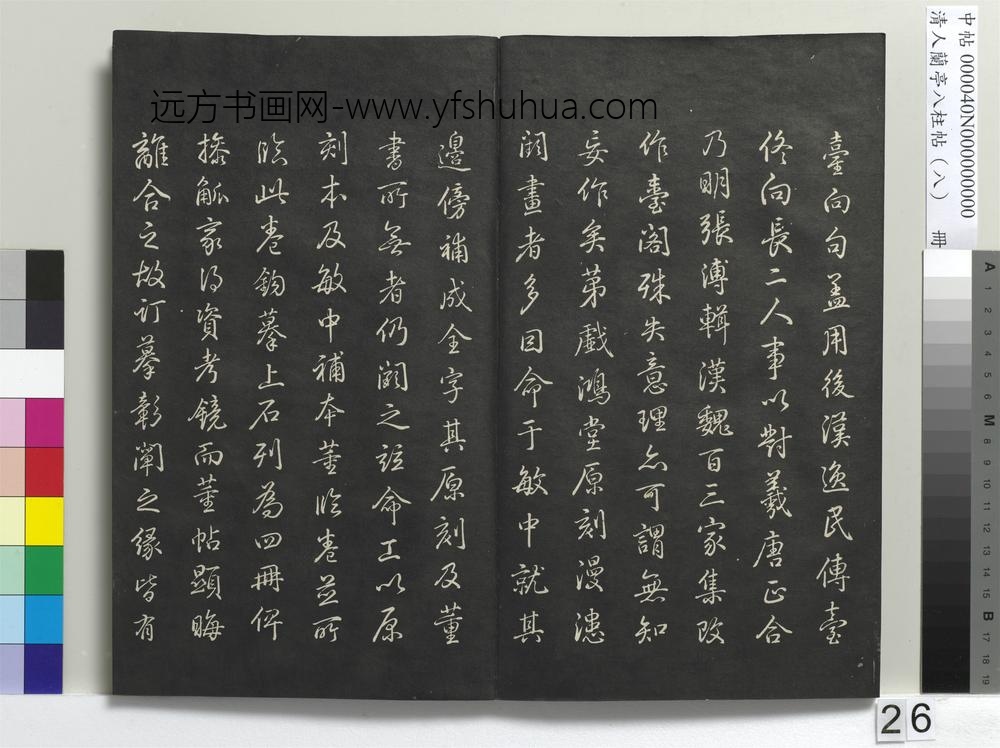 中帖 000040N000000000
清人蘭亭八柱帖（八） 冊
远方书画网-www.yfshuhua.com
臺向句盖用後漢逸民傳臺
佟向長二人事以對羲唐正合
乃明張溥輯漢魏百三家集改
作臺閣殊失意理亦可謂無知
妄作矣第戲鴻堂原刻漫漶
闕畫者多因命于敏中就其
邊傍補成全字其原刻及董
書所無者仍闕之並命工以原
刻本及敏中補本董臨卷並所
臨此卷鈎摹上石列為四冊俾
操觚家得資考鏡而董帖顯晦
離合之故訂摹彰闡之緣皆有
26
A 1 2 3 4 5 6 M 8 9 10 11 12 13 14 15 B 17 18 19